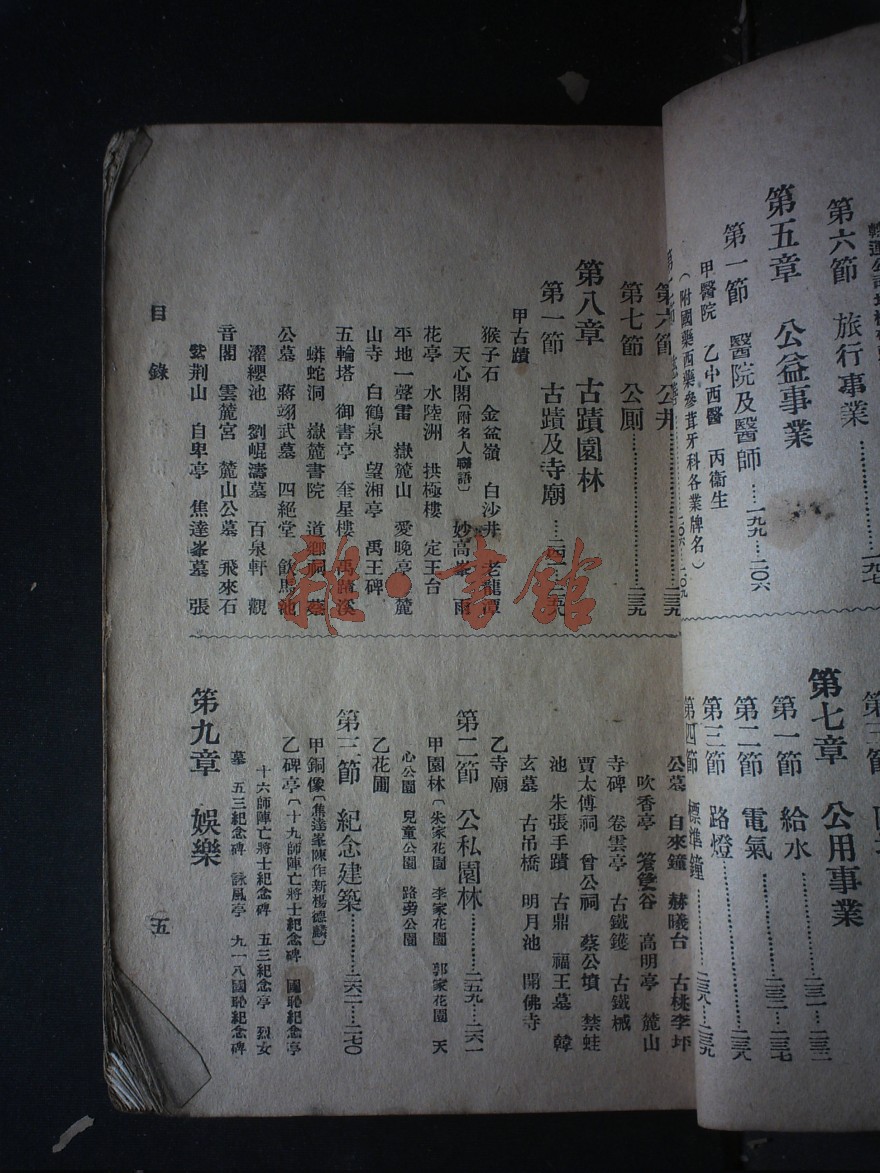 第六節 旅行事業
第五章 公益事業
第一節 醫院及醫師……一九九…二〇六
甲醫院 乙中西醫 丙衛生
(附國藥西藥參茸牙科各業牌名)
第七章 公用事業
第一節 給水
第二節 電氣
第三節 路燈
第四節 標準鐘
第六節 公井
第七節 公厠
第八章 古蹟園林
第一節 古蹟及寺廟
甲古蹟
猴子石 金盆嶺 白沙井 老龍潭
天心閣(附名人聯語) 妙高峯 雨
花亭 水陸洲 拱極樓 定王台
平地一聲雷 嶽麓山 愛晚亭 麓
山寺 白鶴泉 望湘亭 禹王碑
五輪塔 御書亭 奎星樓 禹蹟溪
蟒蛇洞 嶽麓書院 道鄉祠 蔡
公墓 蔣翊武墓 四絕堂 飲馬池
濯纓池 劉崐濤墓 百泉軒 觀
音閣 雲麓宮 麓山公墓 飛來石
紫荆山 自卑亭 焦達峯墓 張
公墓 自來鐘 赫曦台 古桃李圷
吹香亭 谷 高明亭 麓山
寺碑 卷雲亭 古鐵鑊 古鐵械
賈太傅祠 曾公祠 蔡公墳 禁蛙
池 朱張手蹟 古鼎 福王墓 韓
玄墓 古吊橋 明月池 開佛寺
乙寺廟
第二節 公私園林…………二五九…二六一
甲園林(朱家花園 李家花園 郭家花園 天
心公園 兒童公園 路旁公園
乙花圃
第三節 紀念建築…………二六二…二七〇
甲銅像(焦達峯陳作新楊德麟)
乙碑亭(十九師陣亡將士紀念碑 國恥紀念亭
十六師陣亡將士紀念碑 五三紀念亭 烈女
墓 五三紀念碑 詠風亭 九一八國恥紀念碑
第九章 娛樂
目錄
五
雜·書館